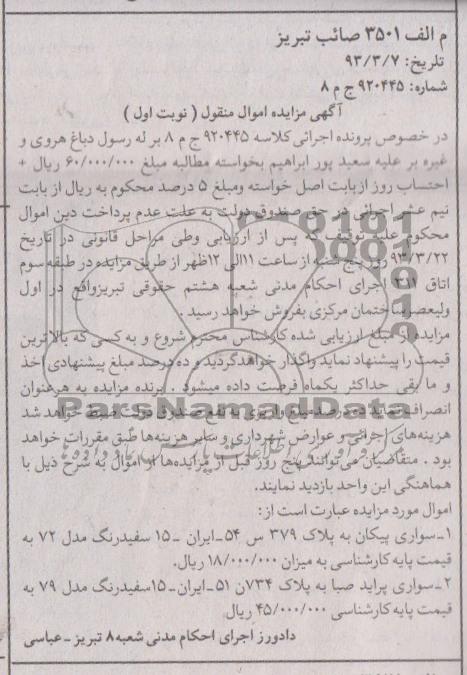 م الف ۳۵۰۱ صائب تبریز
تاریخ: ۹۳/۳/۷
شماره: ۹۲۰۴۴۵ ج م ۸
آگهی مزایده اموال منقول ( نوبت اول )
در خصوص پرونده اجرائی کلاسه ۹۲۰۴۴۵ ج م ۸ بر له رسول دباغ هروی و
غیره بر علیه سعید پور ابراهیم بخواسته مطالبه مبلغ ۶۰/۰۰۰/۰۰۰ ریال +
احتساب روز از بابت اصل خواسته ومبلغ ۵ درصد محکوم به ریال از بابت
نیم عشر اجرائی در حق صندوق دولت به علت عدم پرداخت دین اموال
محکوم علیه توقیف پس از ارزیابی وطی مراحل قانونی در تاریخ
۹۳/۳/۲۲ روز پنج شنبه از ساعت ۱۱الی ۱۲ظهر از طریق مزایده در طبقه سوم
اتاق ۳۱۱ اجرای احکام مدنی شعبه هشتم حقوقی تبریزواقع در اول
ولیعصرساختمان مرکزی بفروش خواهد رسید .
مزایده از مبلغ ارزیابی شده کارشناس محترم شروع و به کسی که بالاترین
قیمت را پیشنهاد نماید واگذار خواهدگردید و ده درصد مبلغ پیشنهادی اخذ
و ما بقی حداکثر یکماه فرصت داده میشود . برنده مزایده به هرعنوان
انصراف نماید ده درصد مبلغ واریزی به نفع صندوق دولت ضبط خواهد شد
هزینه‌های اجرائی و عوارض شهرداری و سایر هزینه‌ها طبق مقررات خواهد
بود . متقاضیان می‌توانند پنج روز قبل از مزایده‌ها از اموال به شرح ذیل با
هماهنگی این واحد بازدید نمایند.
اموال مورد مزایده عبارت است از:
۱-سواری پیکان به پلاک ۳۷۹ س ۵۴-ایران -۱۵ سفیدرنگ مدل ۷۲ به
قیمت پایه کارشناسی به میزان ۱۸/۰۰۰/۰۰۰ ریال.
۲-سواری پراید صبا به پلاک ۷۳۴ن ۵۱-ایران-۱۵سفیدرنگ مدل ۷۹ به
قیمت پایه کارشناسی ۴۵/۰۰۰/۰۰۰ ریال
دادورز اجرای احکام مدنی شعبه ۸ تبریز-عباسی
ParsNamadData